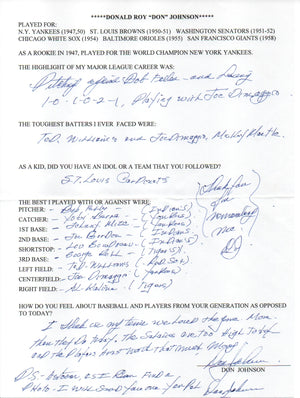 *****DONALD ROY "DON" JOHNSON*****
PLAYED FOR:
N.Y. YANKEES (1947,50) ST. LOUIS BROWNS (1950-51) WASHINGTON SENATORS (1951-52)
CHICAGO WHITE SOX (1954) BALTIMORE ORIOLES (1955) SAN FRANCISCO GIANTS (1958)
AS A ROOKIE IN 1947, PLAYED FOR THE WORLD CHAMPION NEW YORK YANKEES.
THE HIGHLIGHT OF MY MAJOR LEAGUE CAREER WAS:
Pitching against Bob Feller and Losing
1-0, 1-0, 2-1, Playing with Joe Dimaggio
THE TOUGHEST BATTERS I EVER FACED WERE:
Ted. Williams and Joe Dimaggio, Mickey Mantle
AS A KID, DID YOU HAVE AN IDOL OR A TEAM THAT YOU FOLLOWED?
S.T. Louis Cardinals
THE BEST I PLAYED WITH OR AGAINST WERE:
PITCHER: - Bob Feller - (Indians)
CATCHER: -
1ST BASE: - Johnny Mize -
2ND BASE: - Joe Gordon - (Indians)
SHORTSTOP: - Lou Boudreau - (Indians)
3RD BASE: - George Kell - (Tigers)
LEFT FIELD: - Ted. Williams - (Red Sox)
CENTERFIELD: - Joe Dimaggio - (Yankees)
RIGHT FIELD: - Al Kaline - (Tigers)
Thank you
for
remembering
me
DJ
HOW DO YOU FEEL ABOUT BASEBALL AND PLAYERS FROM YOUR GENERATION AS OPPOSED
TO TODAY?
I think in my time we loved the game More
than they do today, the Salaries are too high Today
and the players aren't worth that much Money
Don Johnson
DON JOHNSON
P.S.
Photo. I will send you one for
Don Johnson